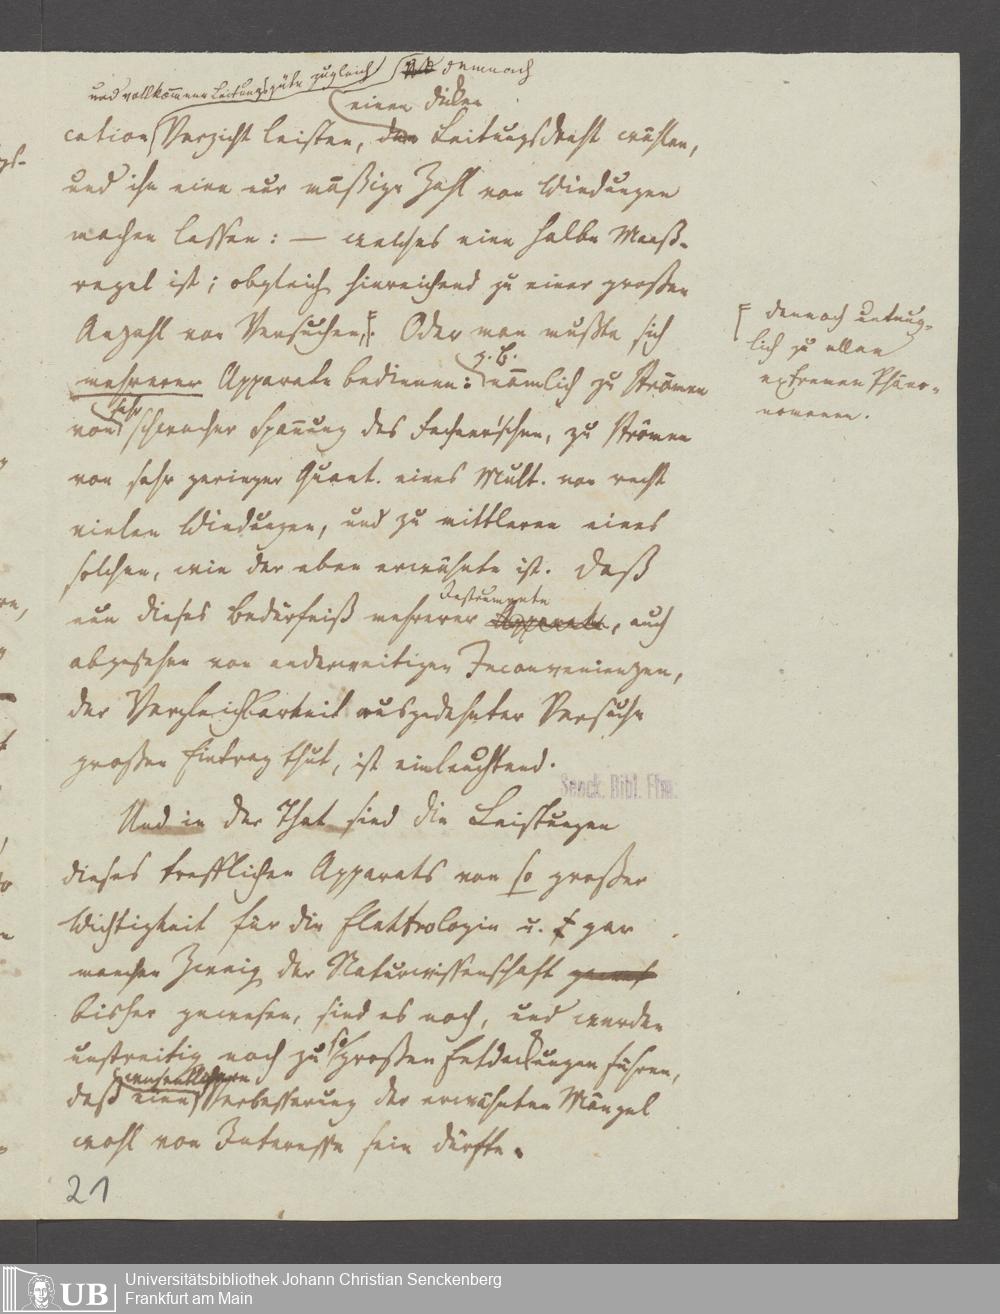 und vollkommene Leitungsgüte zugleich demnach
einen dicken
cation Verzicht leisten, den Leitungsdraht wählen,
und ihn eine nur mäßige Zahl von Windungen
machen lassen: — welches eine halbe Maaß-
regel ist; obgleich hinreichend zu einer großen
Anzahl von Versuchen, Oder man mußte sich
dennoch untaug-
lich zu allen
extremen Phäno-
menen.
z. B.
mehrerer Apparate bedienen: nämlich zu Strömen
sehr
von schwacher Spannung des Fechner'schen, zu Strömen
von sehr geringer Quant. eines Mult. von recht
vielen Windungen, und zu mittleren eines
solchen, wie der eben erwähnte ist. Daß
Instrumente
nun dieses Bedürfniß mehrerer Apparate, auch
abgesehen von anderweitigen Inconvenienzen,
der Vergleichbarkeit ausgedehnter Versuche
großen Eintrag thut, ist einleuchtend.
Senck. Bibl. Ffm.
Und in der That sind die Leistungen
dieses trefflichen Apparats von so großer
Wichtigkeit für die Elektrologie u. gar
manchen Zweig der Naturwissenschaft
bisher gewesen, sind es noch, und werden
so
unstreitig noch zu großen Entdeckungen führen,
daß eine Verbesserung der erwähnten Mängel
wohl von Interesse sein dürfte.
21
UB
Universitätsbibliothek Johann Christian Senckenberg
Frankfurt am Main